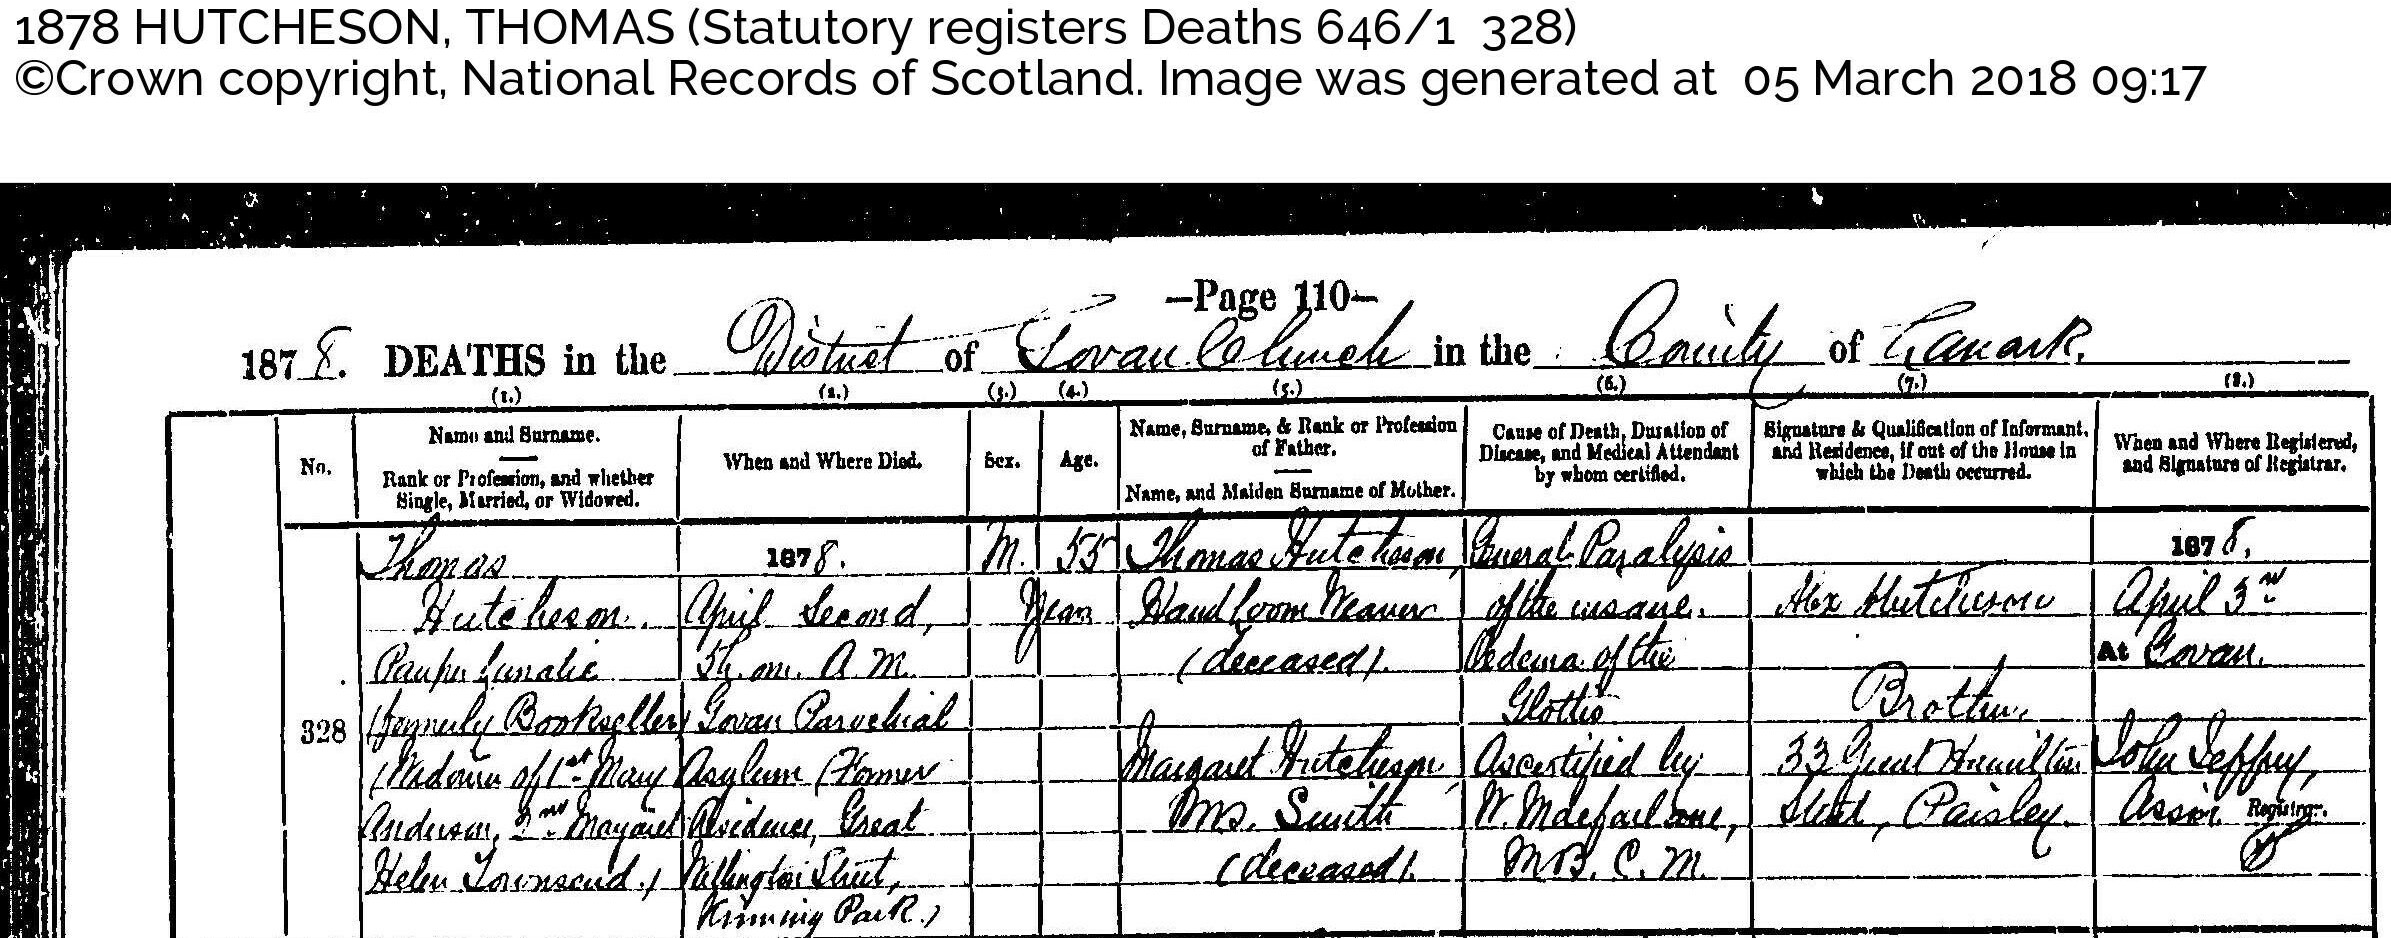 1878 HUTCHESON, THOMAS (Statutory registers Deaths 646/1 328)
©Crown copyright, National Records of Scotland. Image was generated at 05 March 2018 09:17
—Page 110—
1878. DEATHS in the District of Govan Church in the County of Lanark.
(1.) (2.) (3.) (4.) (5.) (6.) (7.) (8.)
No.
Name and Surname.
Rank or Profession, and whether
Single, Married, or Widowed.
When and Where Died.
Sex.
Age.
Name, Surname, & Rank or Profession
of Father.
Name, and Maiden Surname of Mother.
Cause of Death, Duration of
Disease, and Medical Attendant
by whom certified.
Signature & Qualification of Informant,
and Residence, if out of the House in
which the Death occurred.
When and Where Registered,
and Signature of Registrar.
328
Thomas
Hutcheson.
Pauper Lunatic
(formerly Bookseller)
(Widower of 1st Mary
Anderson, 2nd Margaret
Helen Townsend.)
1878.
April Second,
5h. 0m. A.M.
Govan Parochial
Asylum (Former
Residence, Great
Wellington Street,
Kinning Park.)
M.
55
Years
Thomas Hutcheson,
Hand loom Weaver
(deceased).
Margaret Hutcheson,
M.S. Smith
(deceased).
General Paralysis
of the insane.
Oedema of the
Glottis
As certified by
W. Macfarlane,
M.B. C.M.
Alex Hutcheson
Brother.
33 Great Hamilton
Street, Paisley.
1878,
April 3rd
At Govan.
John Jeffrey,
Assist. Registrar.